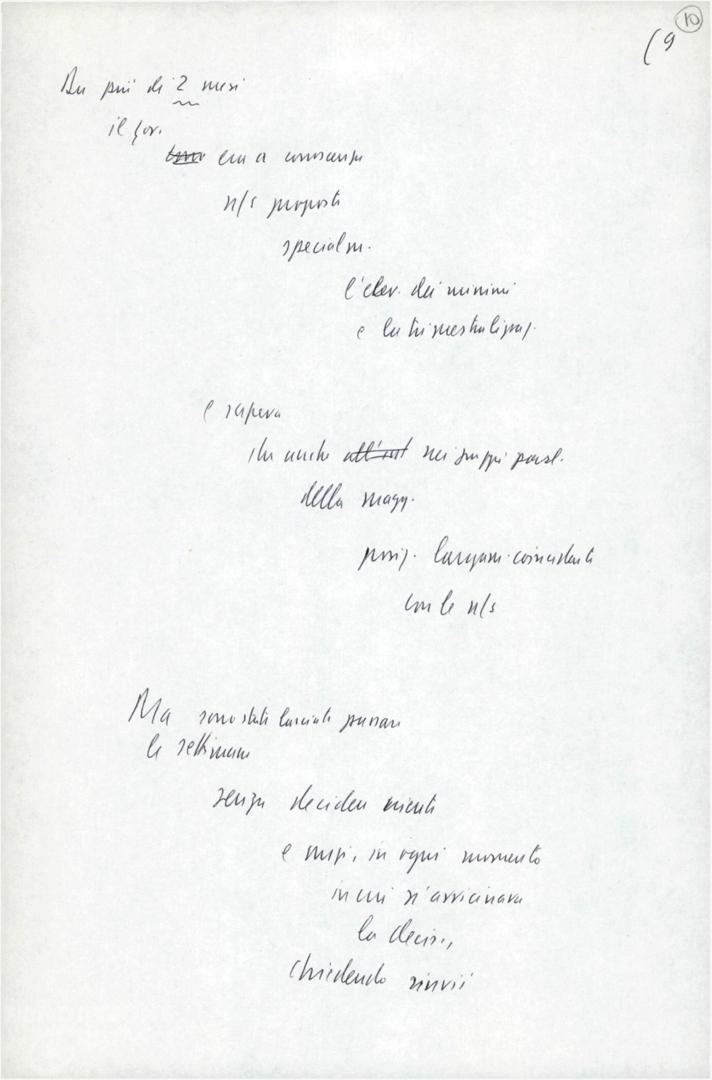 10
(9
Da più di 2 mesi
il gov.
era a conoscenza
n/s proposte
specialm.
l'elev. dei minimi
e la trimestralizzaz.
e sapeva
che anche nei gruppi parl.
della magg.
posiz. largam. coincidenti
con le n/s
Ma sono stati lasciati passare
le settimane
senza decidere niente
e anzi, in ogni momento
in cui s'avvicinava
la decis.,
chiedendo rinvii